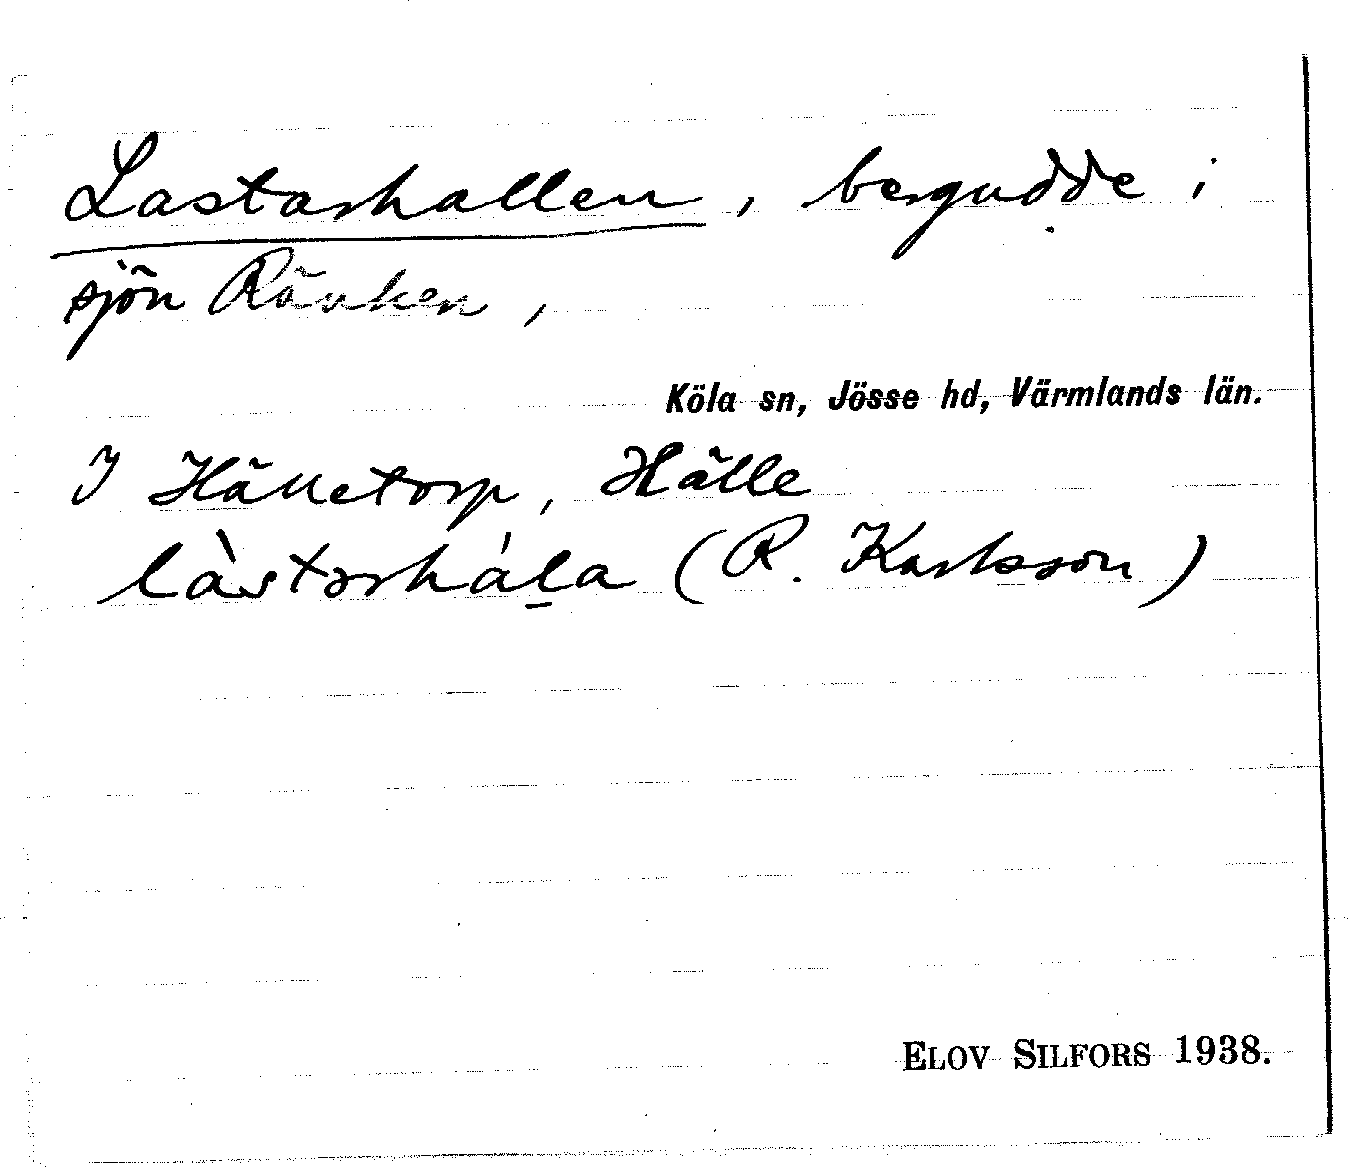 Lastarhallen, bergudde i
sjön Rävken,
Köla sn, Jösse hd, Värmlands län.
I Hälletorp, Hälle
làstorháḻa (R. Karlsson)
ELOV SILFORS 1938.